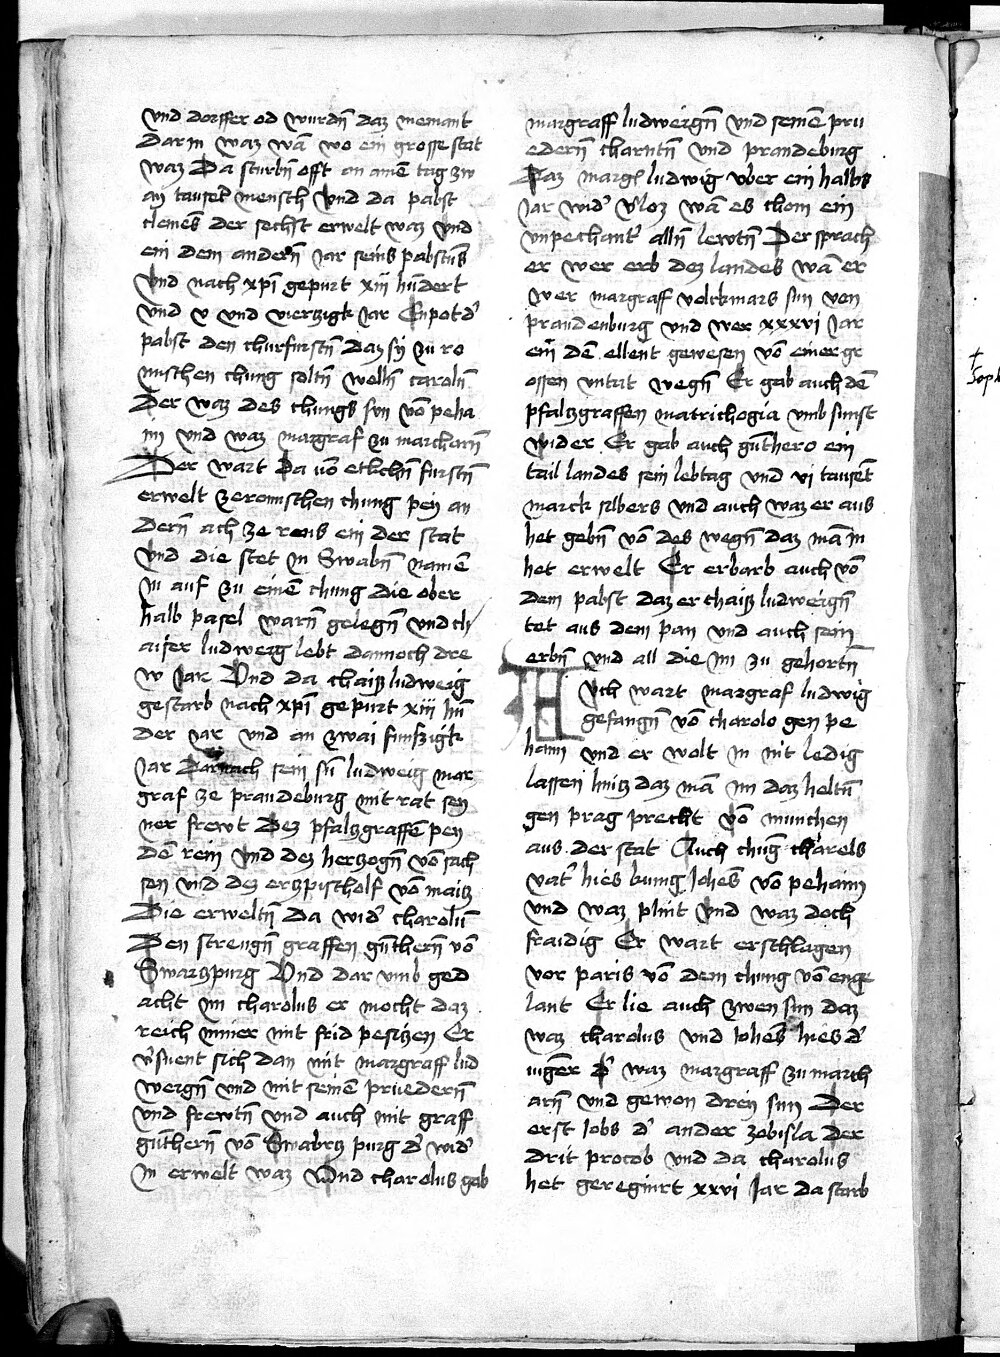 vnd dorffer od wurdn̄ daz niemant
darin waz wā wo ein grosse stat
waz Da sturbn̄ offt an ainē tag zw
ai tausēt mensch Vnd da pabst
clemēs der sechst erwelt waz Vnd
ein dem andern̄ Jar seins pabstūs
Vnd nach xp̄i gepurt xiii hūdert
vnd v vnd vierzigk Jar Enpot d'
pabst den churfurstn̄ Daz sy zu ro
mischen chung soltn̄ welln̄ carolū
Der waz des chungs sun vō peha
im vnd waz margraf zu marcharn̄
Der wart Da vō etlichn̄ furstn̄
erwelt ze romischen chung pey an
dern̄ ach ze rens ein der stat
Vnd die stet in Swabn̄ namē
in auf zu einē chung die ober
halb pasel warn̄ gelegn̄ vnd ch
aiser ludweig lebt dannoch dre
w Jar Vnd da chaisz ludweig
gestarb nach xp̄i gepurt xiii hū
der Jar vnd an zwai funfzigk
Jar Darnach sein sū ludweig mar
graf ze prandeburg mit rat sey
ner frewt Dez pfalzgraffē pey
dē rein Vnd dez herzogn̄ vō sach
sen vnd dez erzpischolf vō maitz
Die erweltn̄ Da wid' charolū
Den strengn̄ graffen gūthern̄ vō
Swarzpurg Vnd dar vmb ged
acht im charolus er mocht daz
reich nimer mit frid pesizen Er
v'suent sich dan mit margraff lud
weign̄ vnd mit seinē prüedern̄
vnd frewtn̄ vnd auch mit graff
gūthern̄ vō Swabrz purg d' wid'
in erwelt waz Vnd charolus gab
margraff ludweign̄ vnd seinē prü
edern̄ charntn̄ vnd prandeburg
Daz margf ludwig vber ein halbs
Jar wid' v'loz wā es chom ein
vnpechant' alln̄ lewtn̄ Der sprach
er wer erb dez landes wā er
wer margraff volckmars sun von
prandenburg vnd wer xxxvi Jar
ein dē ellent gewesen vō einer gr
ossen vntat wegn̄ Er gab auch dē
pfalzgraffen matrichogia vmb sunst
wider Er gab auch gūthero ein
tail landes sein lebtag vnd vi tausēt
marck silbers vnd auch waz er aus
het gebn̄ vō des wegn̄ daz mā in
het erwelt Er erbarb auch vō
dem pabst daz er chaisz ludweign̄
tet aus dem pan vnd auch sein
erbn̄ vnd all die im zu gehortn̄
Auch wart margraf ludwig
gefangn̄ vō charolo gen pe
haim vnd er wolt in nit ledig
lassen huitz daz mā im daz heltū
gen prag precht vō munchen
aus der stat Auch chūg charels
vat' hies kunig Johēs vō pehaim
vnd waz plint Vnd waz doch
fraidig Er wart erschlagen
vor paris vō dem chung vō enge
lant Er lie auch zwen sun daz
waz charolus vnd Johēs hies d'
iūger d' waz margraff zu march
arn̄ vnd gewon drey sun Der
erst Jobs d' ander zobisla der
drit procob vnd da charolus
het geregnirt xxvi Jar da starb